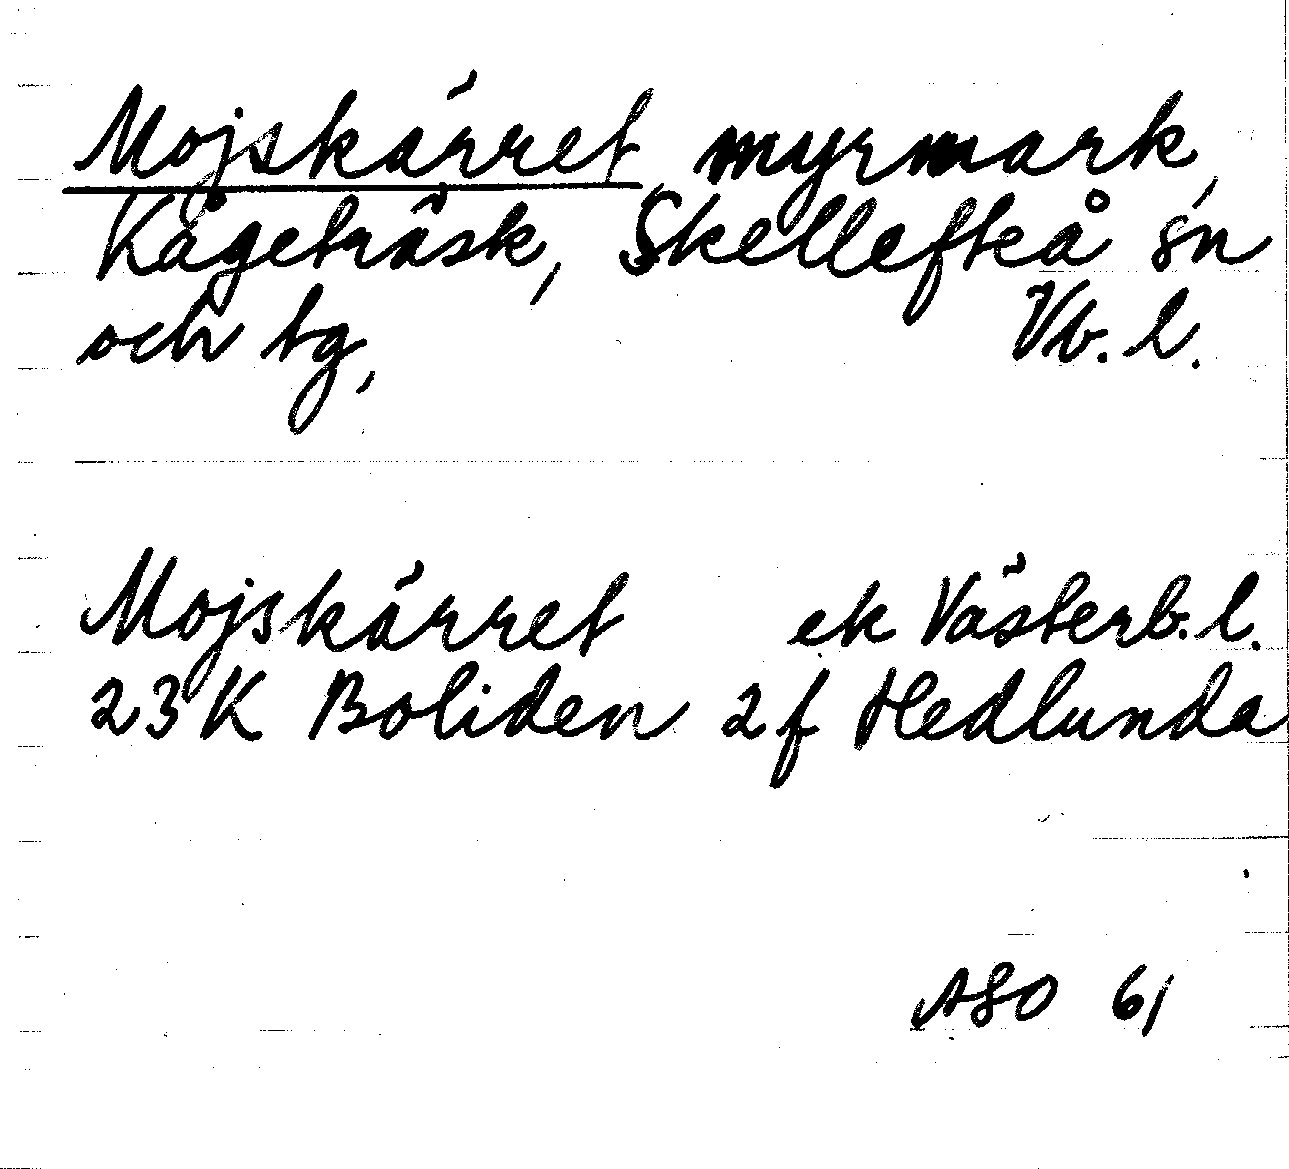 Mojskärret, myrmark,
Kågeträsk, Skellefteå sn
och tg, Vb. l.
Mojskärret ek Västerb. l.
23K Boliden 2f Hedlunda
ASO 61